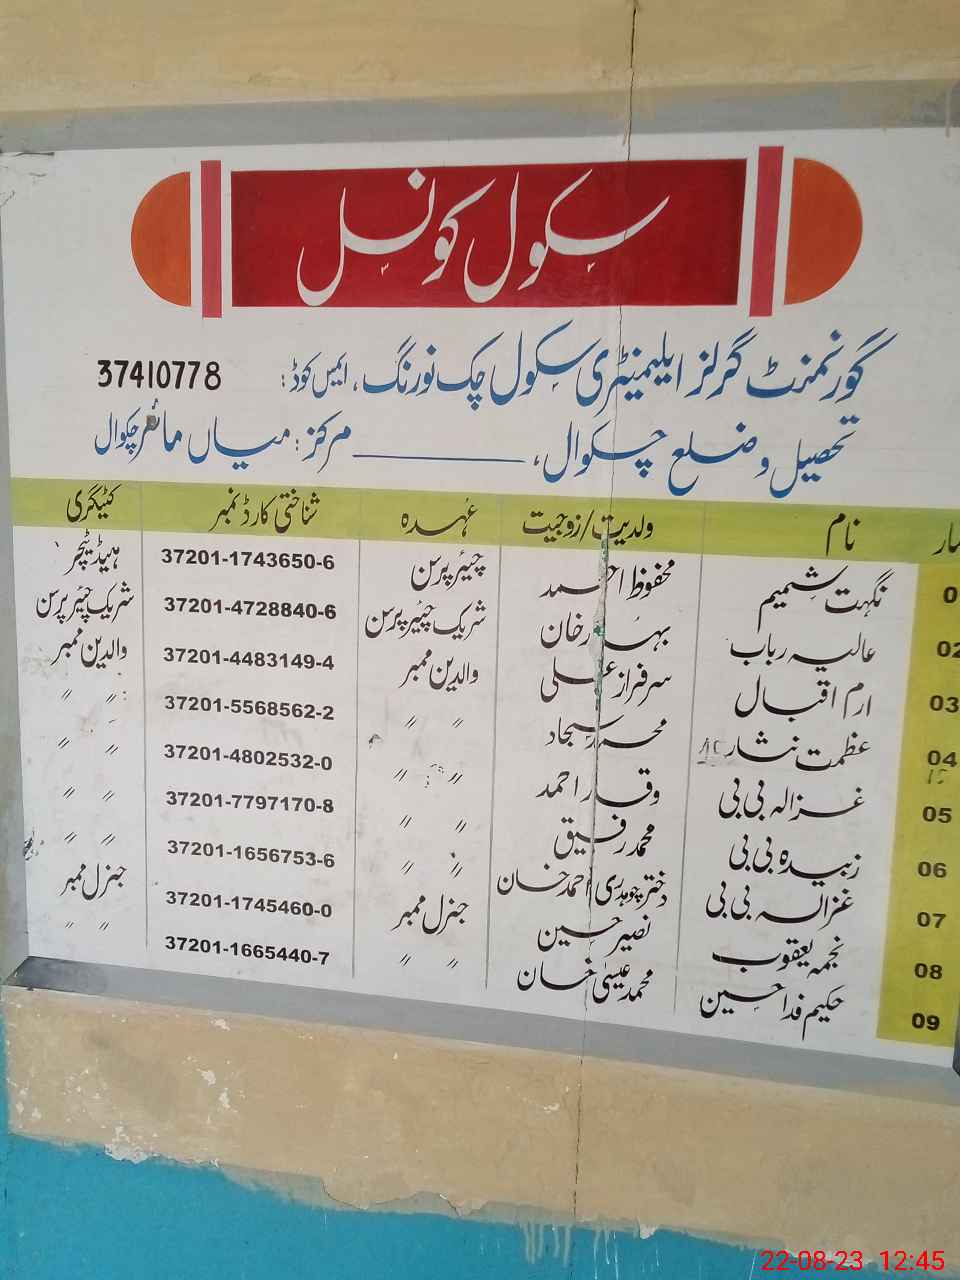 سکول کونسل
گورنمنٹ گرلز ایلیمنٹری سکول چک نورنگ، ایمس کوڈ: 37410778
تحصیل و ضلع چکوال، ________ مرکز: میاں مائر چکوال
مار نام ولدیت/زوجیت عہدہ شناختی کارڈ نمبر کٹیگری
01 نگہت شمیم محفوظ احمد چیئرپرسن 37201-1743650-6 ہیڈ ٹیچر
02 عالیہ رباب بہادر خان شریک چیئرپرسن 37201-4728840-6 شریک چیئرپرسن
03 ارم اقبال سرفراز علی والدین ممبر 37201-4483149-4 والدین ممبر
04 عظمت نثار محمد سجاد 〃 〃 37201-5568562-2 〃 〃
05 غزالہ بی بی وقار احمد 〃 〃 37201-4802532-0 〃 〃
06 زبیدہ بی بی محمد رفیق 〃 〃 37201-7797170-8 〃 〃
07 غزالہ بی بی دختر چوہدری احمد خان 〃 〃 37201-1656753-6 〃 〃
08 نجمہ یعقوب نصیر حسین جنرل ممبر 37201-1745460-0 جنرل ممبر
09 حکیم فدا حسین محمد عیسیٰ خان 〃 〃 37201-1665440-7 〃 〃
22-08-23 12:45